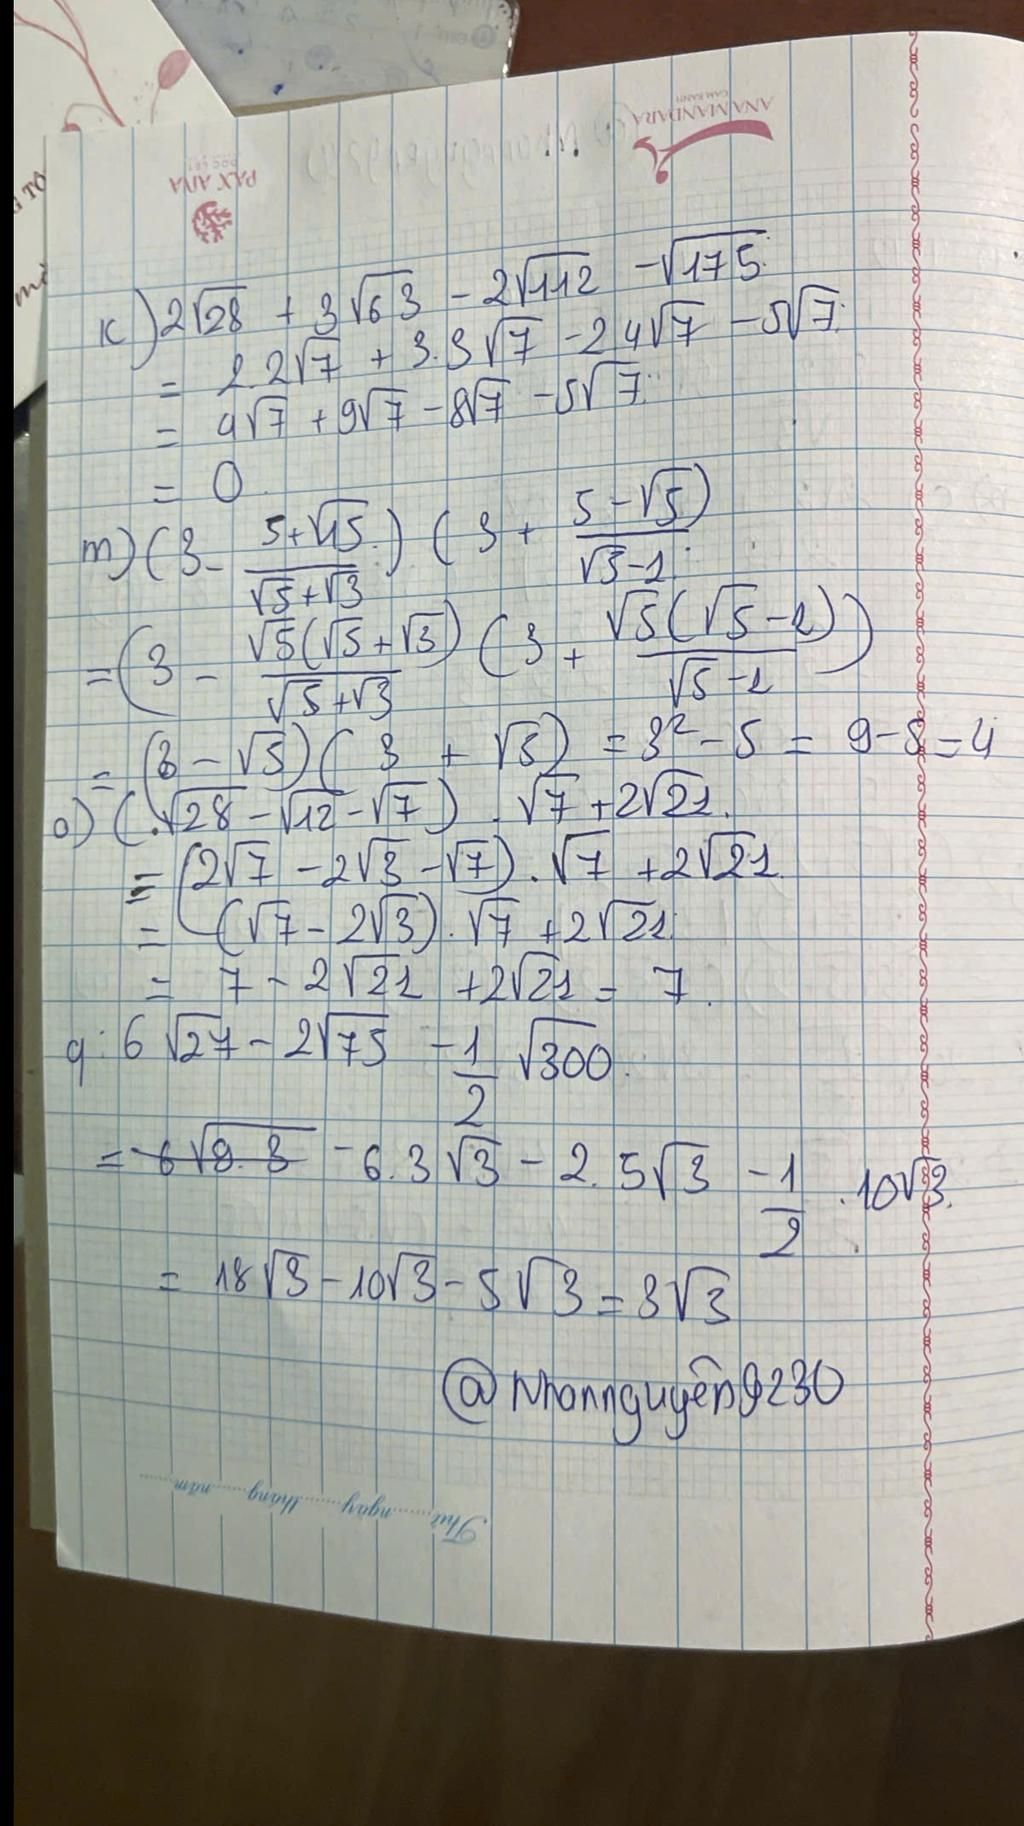 ANA MANDARA
CAM RANH
PAX ANA
DOC LET
TO
K) 2√28 + 3√63 - 2√112 - √175
= 2.2√7 + 3.3√7 - 2 4√7 - 5√7
= 4√7 + 9√7 - 8√7 - 5√7
= 0
m) (3 - (5+√15)/(√5+√3)) (3 + (5-√5)/(√5-1))
= (3 - √5(√5+√3)/(√5+√3)) (3 + √5(√5-1)/(√5-1))
= (3 - √5)(3 + √5) = 3² - 5 = 9 - 5 = 4
o) (√28 - √12 - √7) . √7 + 2√21
= (2√7 - 2√3 - √7) . √7 + 2√21
= (√7 - 2√3) . √7 + 2√21
= 7 - 2√21 + 2√21 = 7
q: 6√27 - 2√75 - 1/2 √300
= 6√9.3 - 6.3√3 - 2.5√3 - 1/2 . 10√3
= 18√3 - 10√3 - 5√3 = 3√3
@Nhonnguyên9230
Thứ.......ngày.......tháng.......năm.......